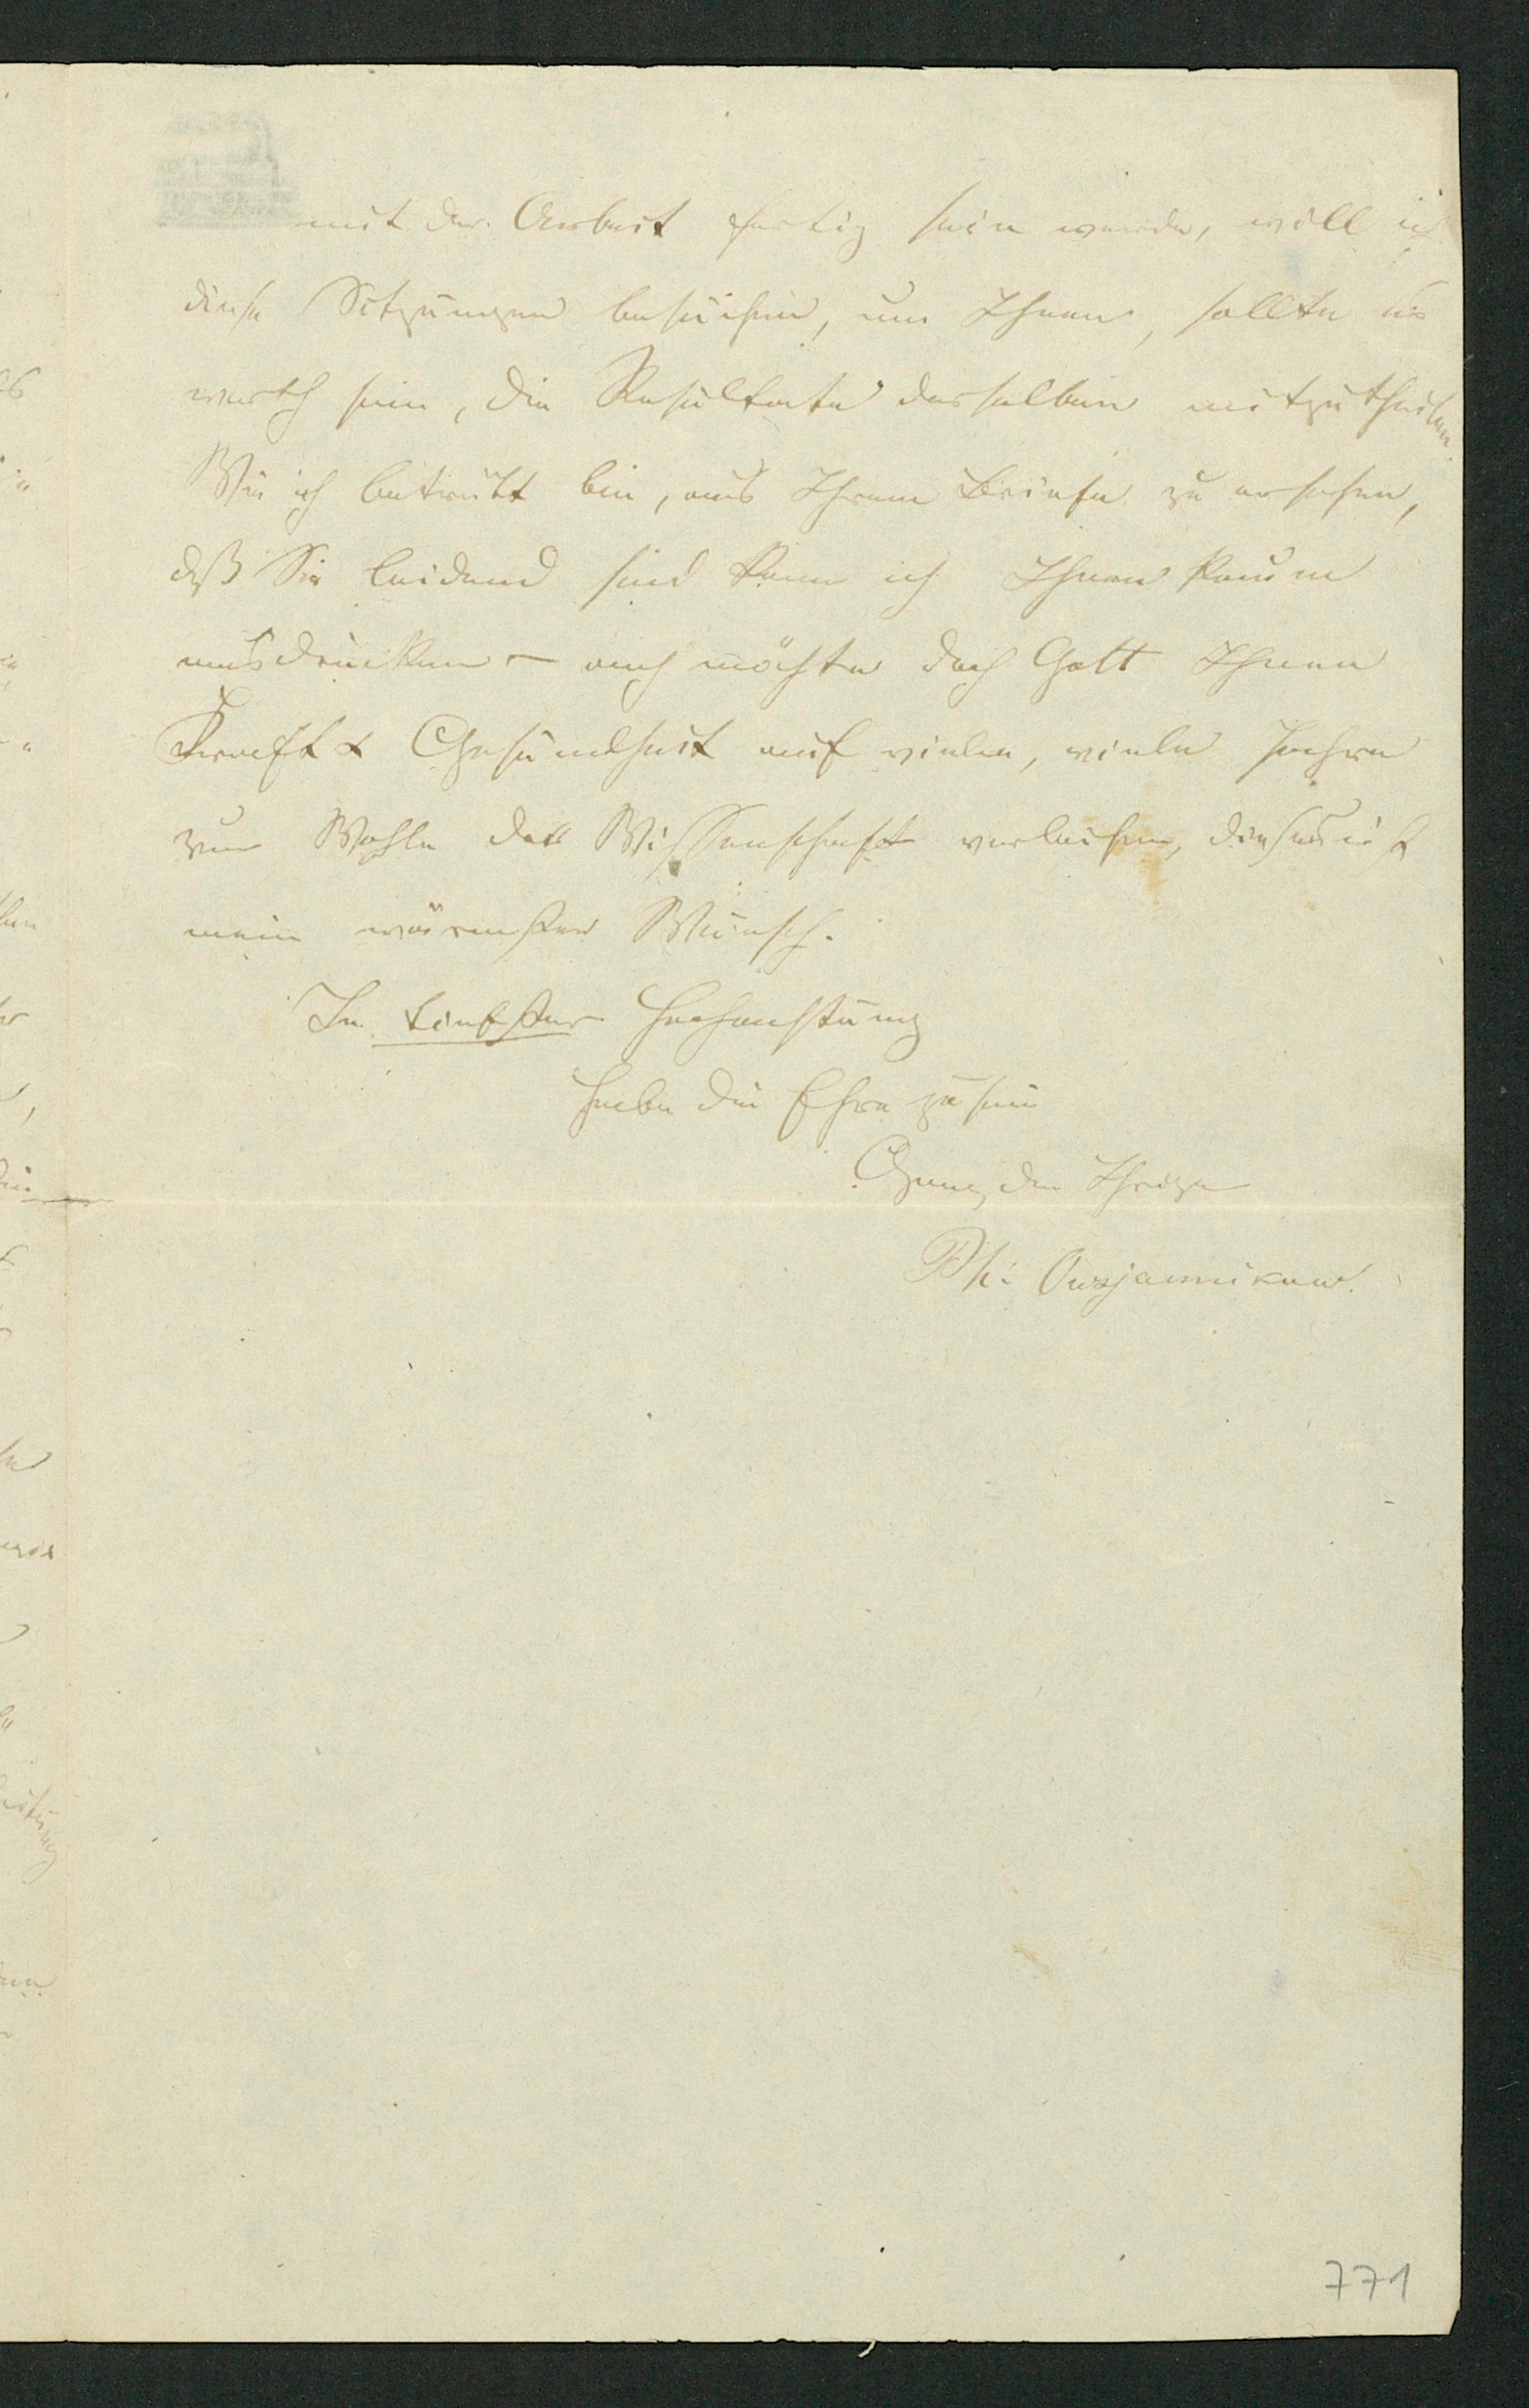 mit der Arbeit fertig sein werde, will ich
diese Sitzungen besuchen, um Ihnen, sollte es
werth sein, die Resultate derselben mitzutheilen.
Wie ich betrübt bin, aus Ihrem Briefe zu ersehen,
daß Sie leidend sind kann ich Ihnen kaum
ausdrücken – auch möchte doch Gott Ihnen
Kraft & Gesundheit auf viele, viele Jahre
zum Wohle der Wissenschaft verleihen, dieses ist
mein wärmster Wunsch.
In tiefster Hochachtung
habe die Ehre zu sein
Ganz der Ihrige
Ph: Owsjannikow.
771